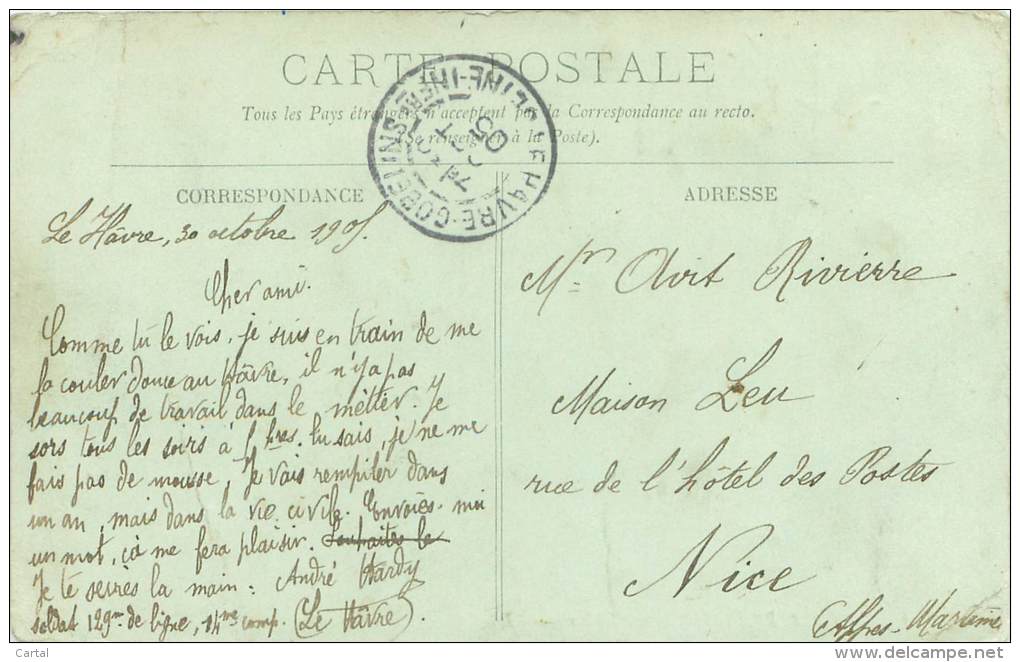 CARTE POSTALE
Tous les Pays étrangers n'acceptent pas la Correspondance au recto.
(Se renseigner à la Poste).
LE HAVRE-GOBELINS
SEINE-INFRE
05
CORRESPONDANCE
Le Hâvre, 30 octobre 1905.
Cher ami.
Comme tu le vois, je suis en train de me
la couler douce au Hâvre, il n'y a pas
beaucoup de travail dans le métier. Je
sors tous les soirs à hres. tu sais, je ne me
fais pas de mousse, Je vais rempiler dans
un an, mais dans la vie civile. Envoies-moi
un mot, çà me fera plaisir. Souhaites le
Je te serres la main: André Hardy
soldat 129me de ligne, 14me comp. (Le Hâvre)
ADRESSE
Mr Avit Rivierre
Maison Leu
rue de l'hôtel des Postes
Nice
Alpes-Maritime
Cartal
delcampe.net